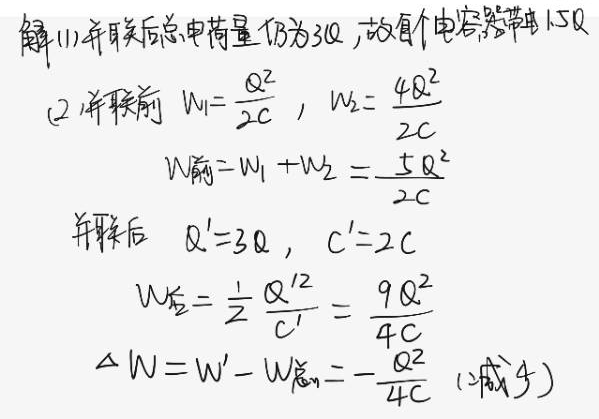 解(1)并联后总电荷量仍为3Q,故每个电容器带电1.5Q
(2)并联前 W₁=Q²/2C , W₂=4Q²/2C
W前=W₁+W₂=5Q²/2C
并联后 Q'=3Q , C'=2C
W后=1/2 Q'²/C'=9Q²/4C
△W=W'-W总=-Q²/4C (减少)